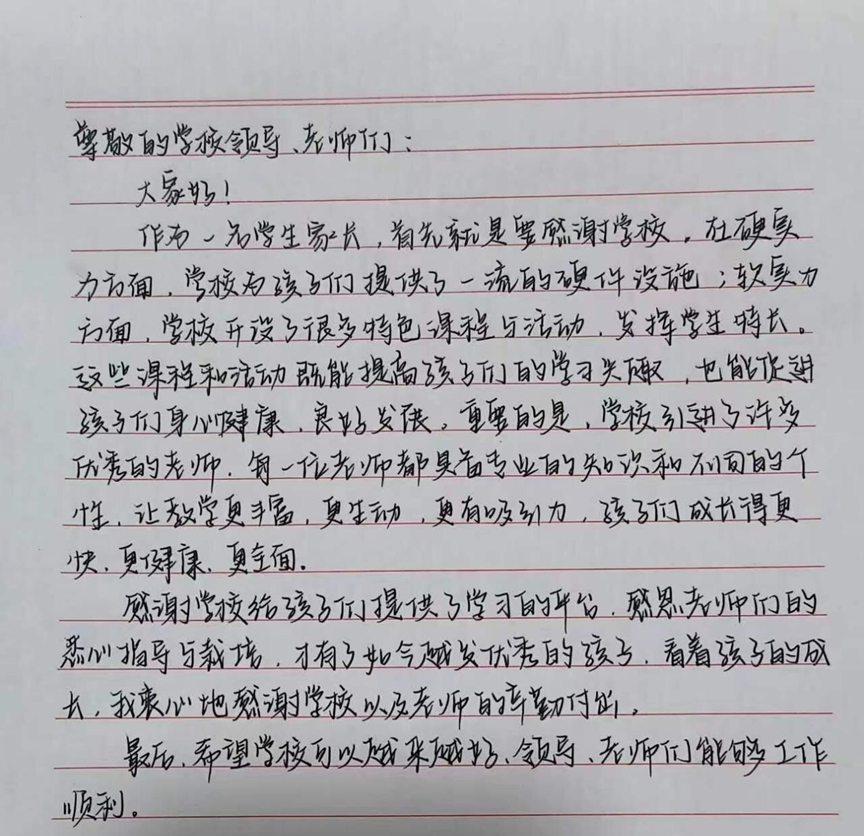 尊敬的学校领导、老师们：
大家好！
作为一名学生家长，首先就是要感谢学校。在硬实
力方面，学校为孩子们提供了一流的硬件设施；软实力
方面，学校开设了很多特色课程与活动，发挥学生特长。
这些课程和活动既能提高孩子们的学习兴趣，也能促进
孩子们身心健康，良好发展。重要的是，学校引进了许多
优秀的老师，每一位老师都具有专业的知识和不同的个
性，让教学更丰富，更生动，更有吸引力，孩子们成长得更
快、更健康、更全面。
感谢学校给孩子们提供了学习的平台，感恩老师们的
悉心指导与栽培，才有了如今越发优秀的孩子，看着孩子的成
长，我衷心地感谢学校以及老师的辛勤付出。
最后，希望学校可以越来越好、领导、老师们能够工作
顺利。